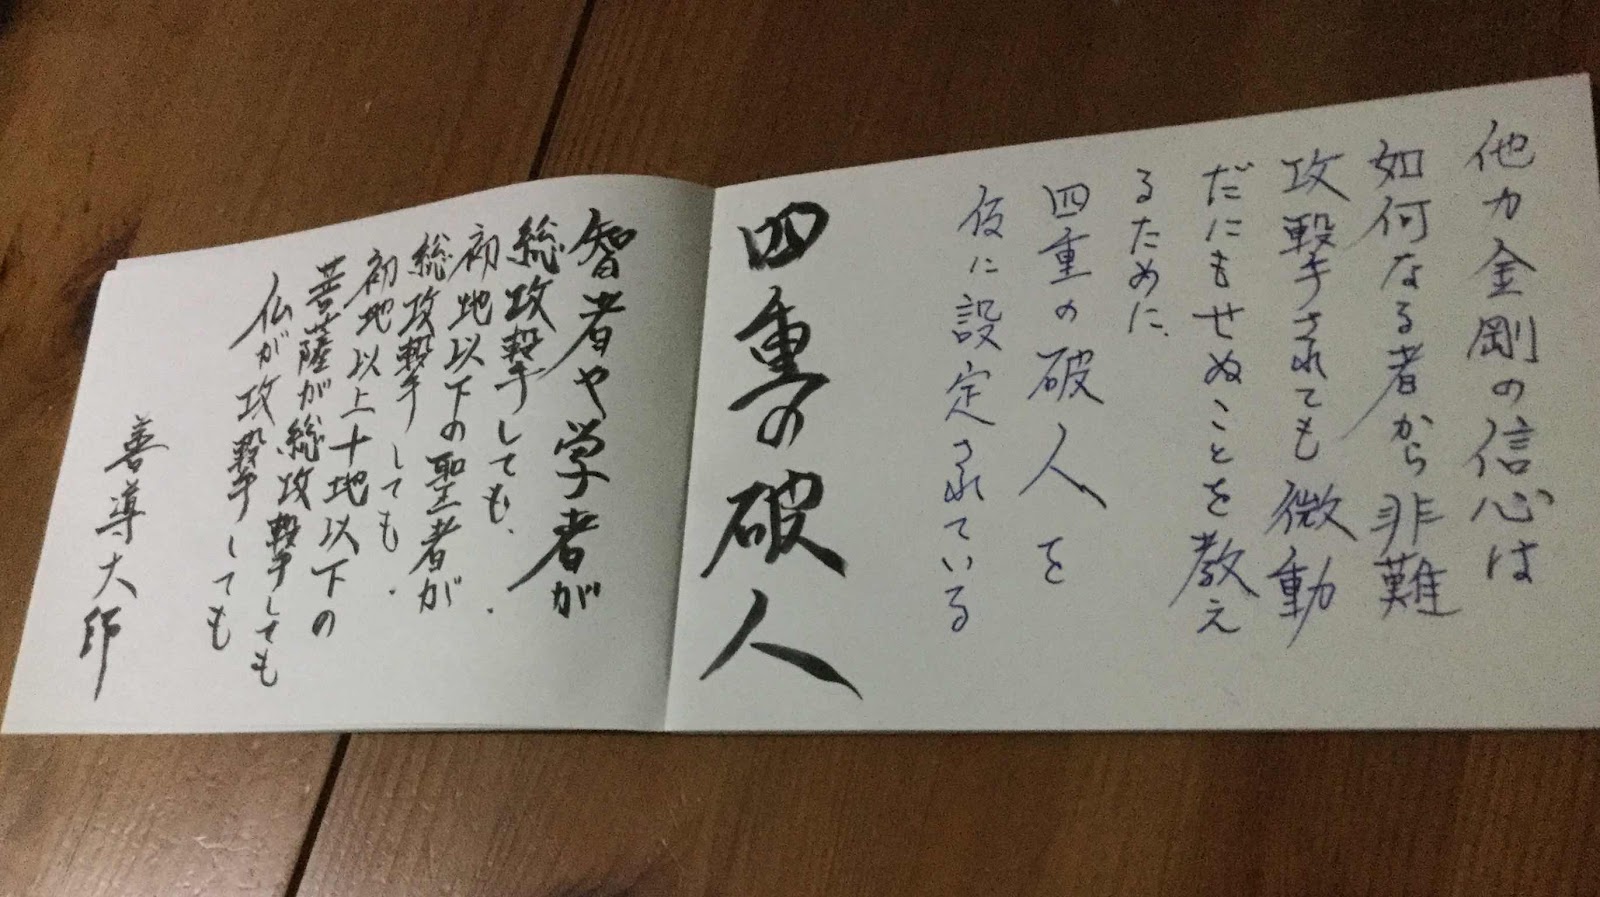 他力金剛の信心は
如何なる者から非難
攻撃されても微動
だにもせぬことを教え
るために、
四重の破人を
仮に設定されている
四重の破人
智者や学者が
総攻撃しても、
初地以下の聖者が
総攻撃しても、
初地以上十地以下の
菩薩が総攻撃しても
仏が攻撃しても
善導大師